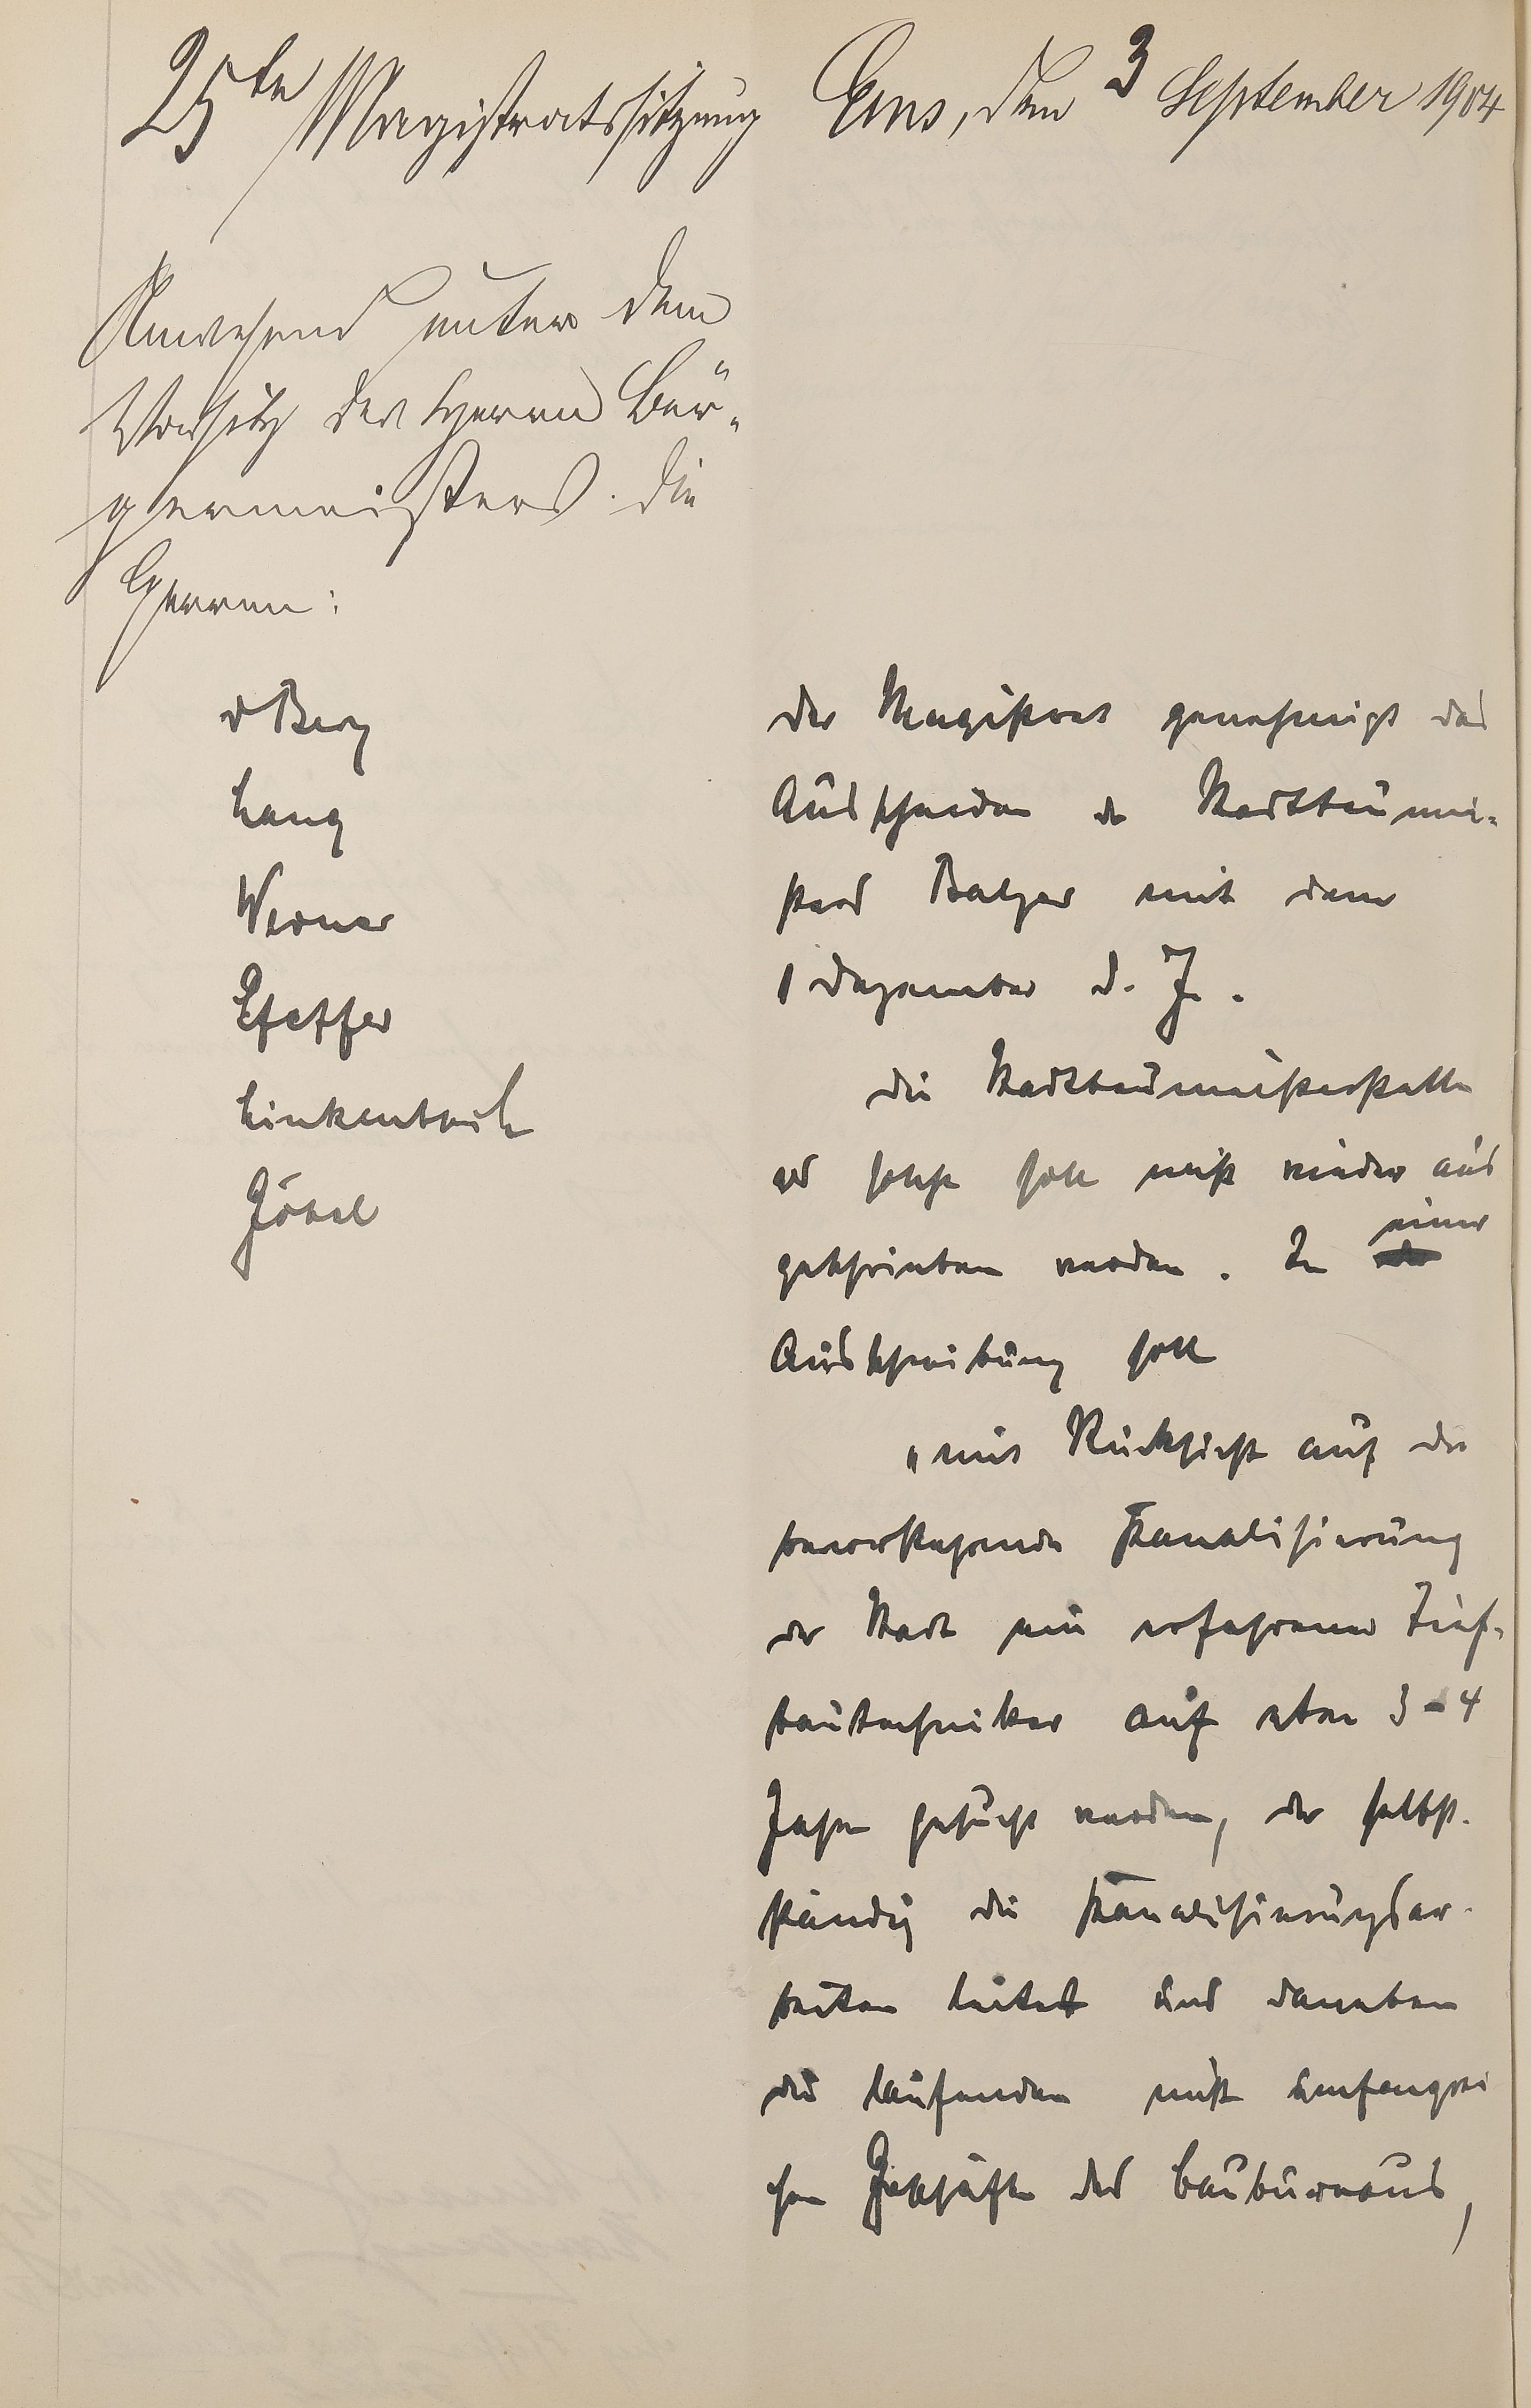 25te Magistratssitzung
Ems, den 3 September 1904
Anwesend unter dem
Vorsitz des Herrn Bür-
germeisters die
Herren:
v Berg
Lang
Werner
Pfeffer
Linkenbach
Göbel
Der Magistrat genehmigt das
Ausscheiden des Stadtbaumei-
sters Balzer mit dem
1 Dezember d. J.
Die Stadtbaumeisterstelle
als solche soll nicht wieder aus
geschrieben werden. In einer
Ausschreibung soll
„mit Rücksicht auf die
bevorstehende Kanalisierung
der Stadt ein erfahrener Tief-
bautechniker auf etwa 3-4
Jahre gesucht werden, der selbst-
ständig die Kanalisierungsar-
beiten leitet und daneben
die laufenden nicht umfangrei
chen Geschäfte des Baubureaus,